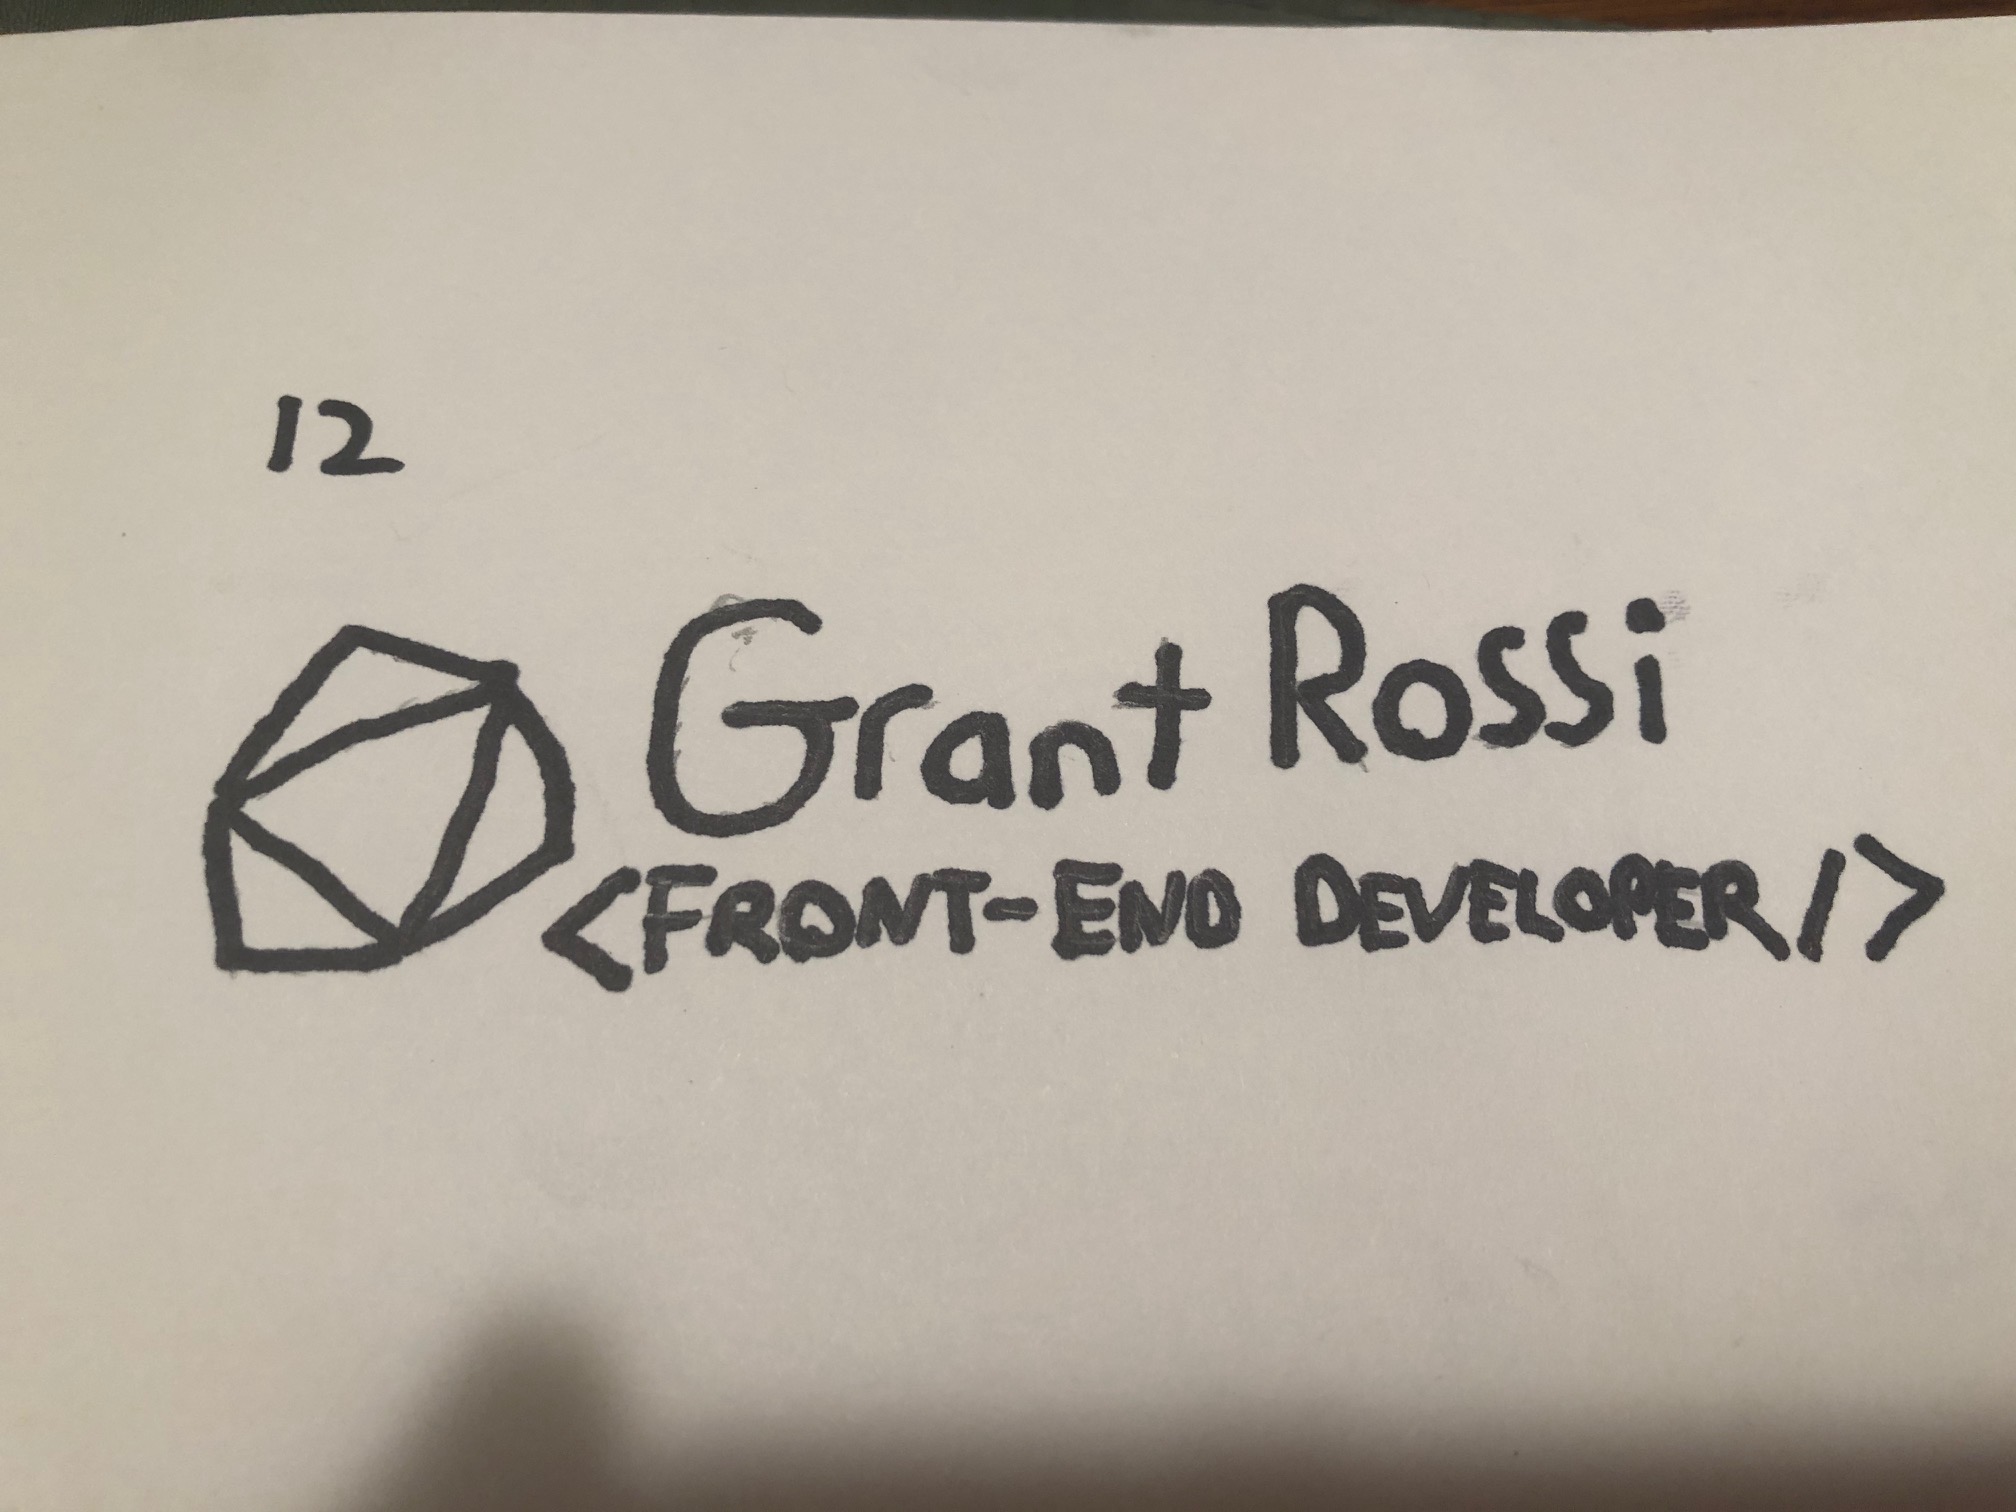 12
Grant Rossi
<FRONT-END DEVELOPER/>